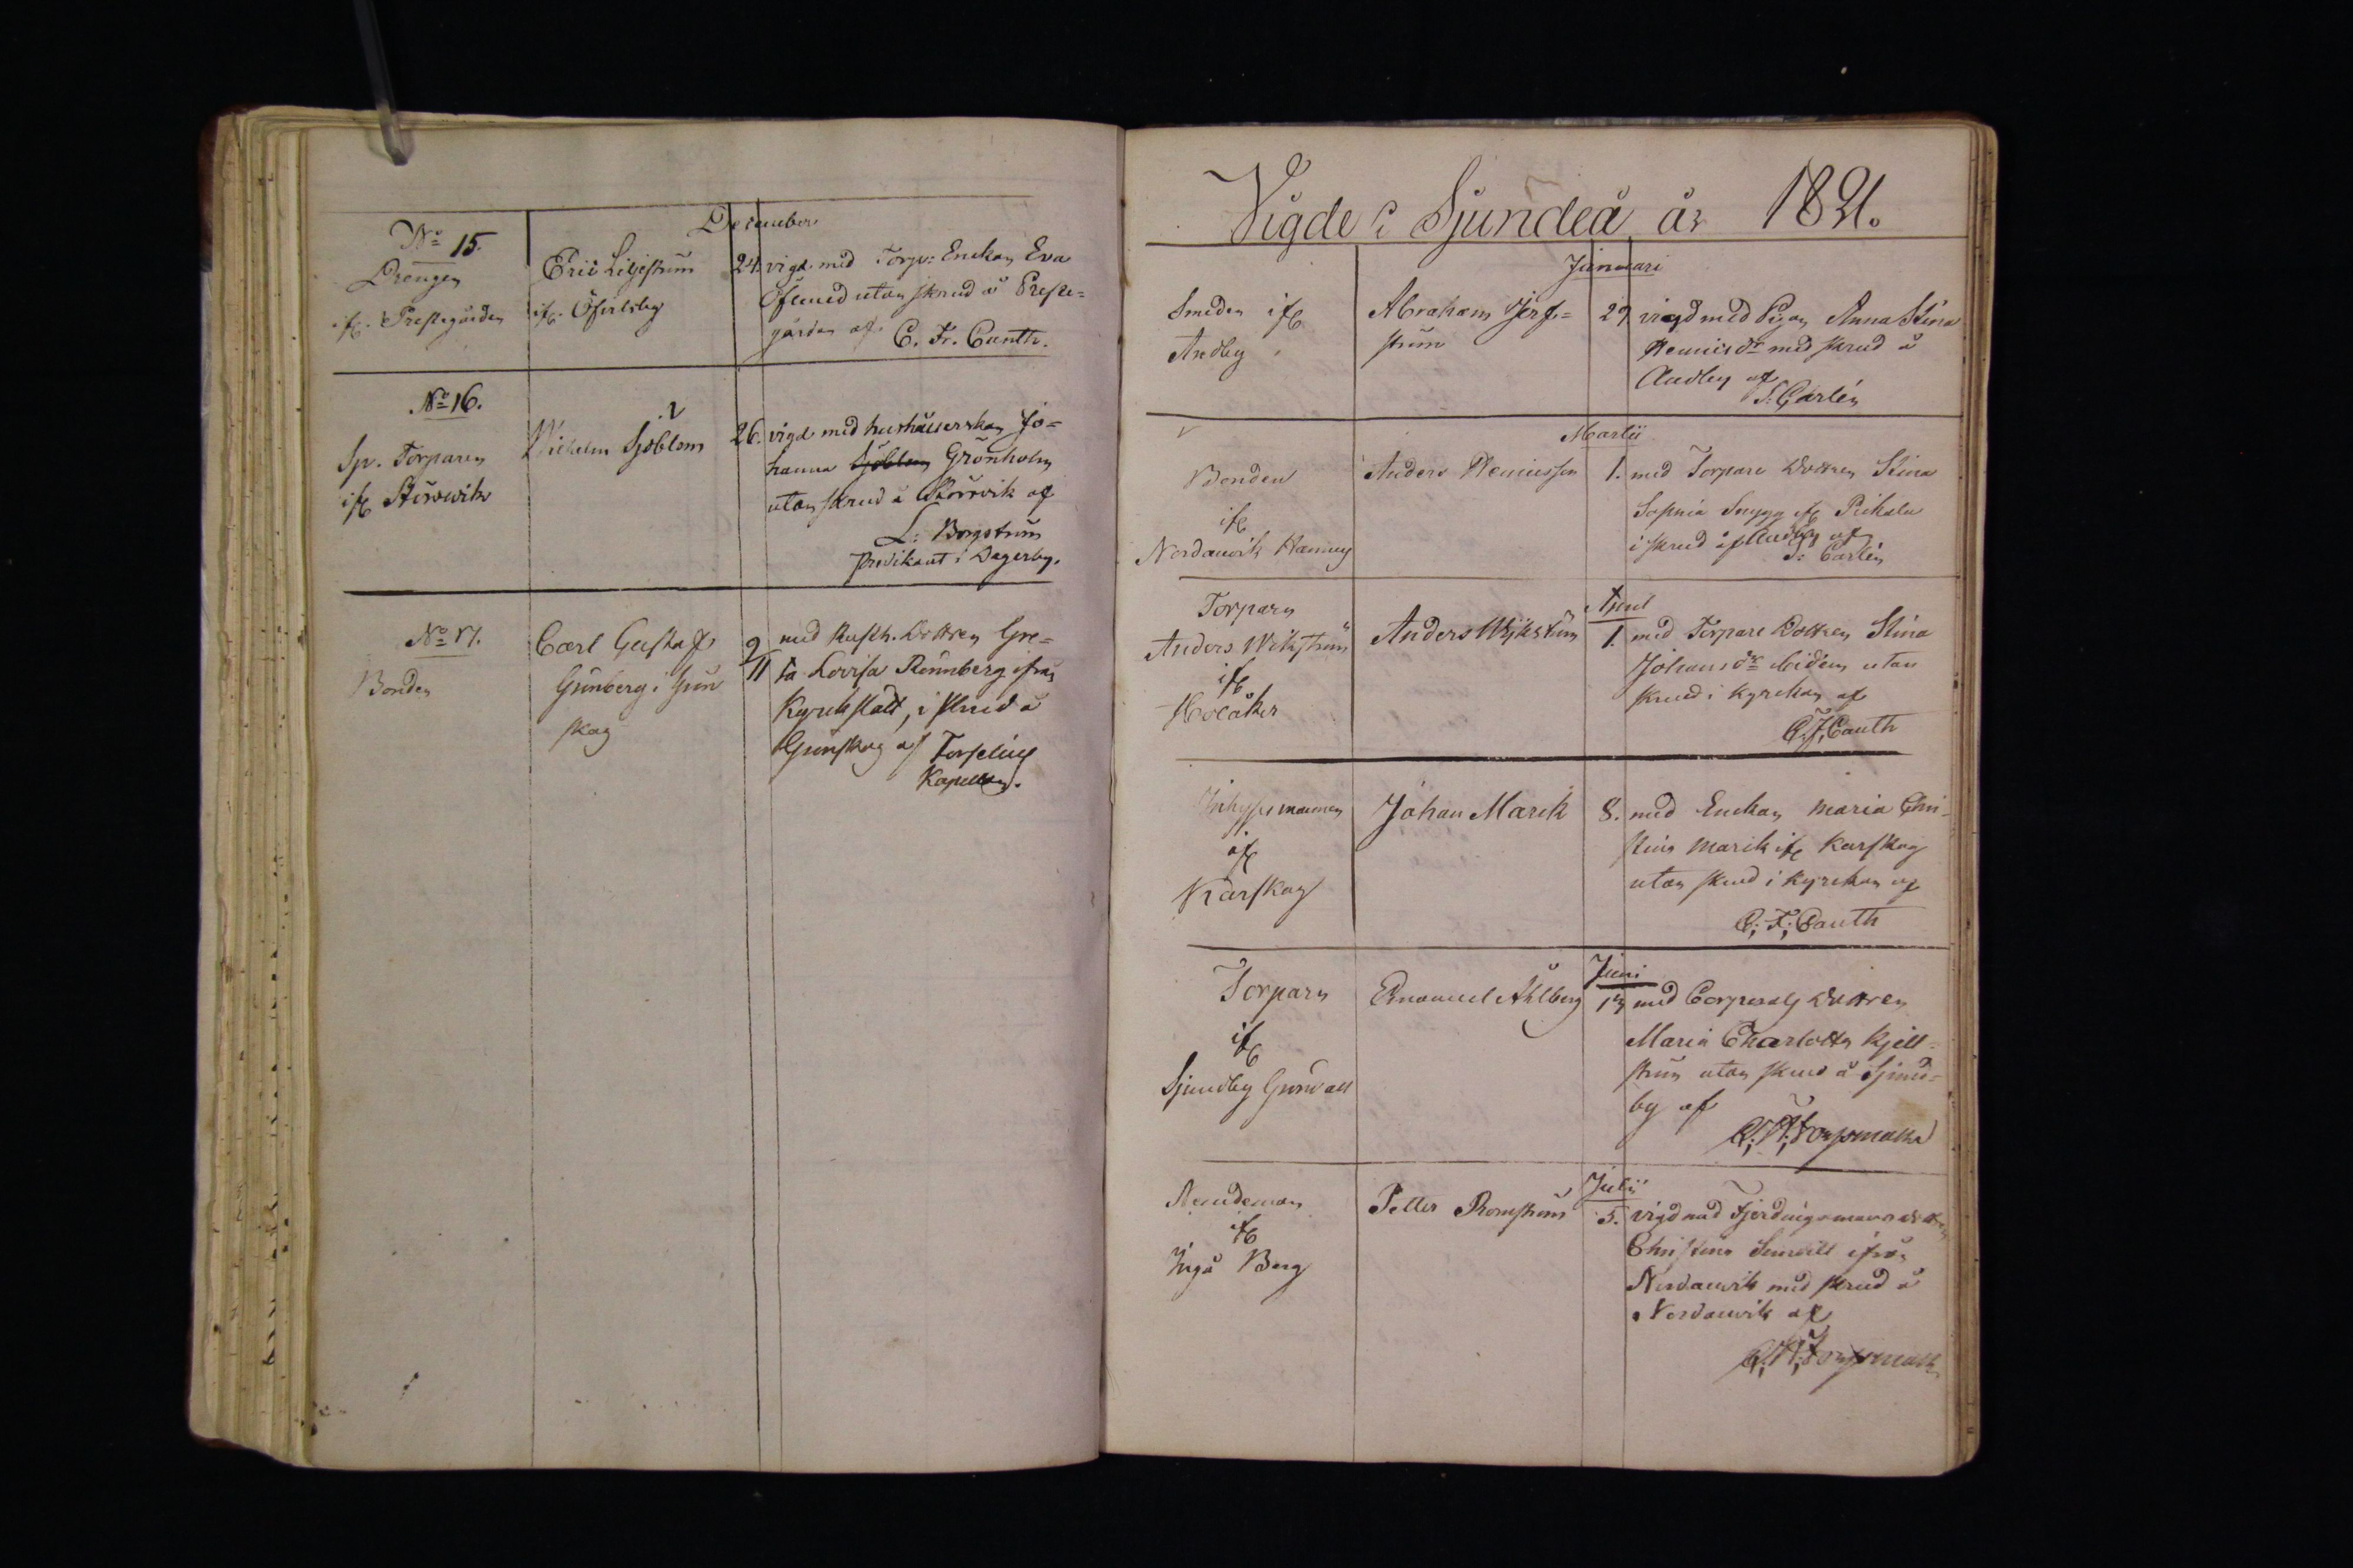 December
No 15.
Drengen
ifr. Prestegården
Eric Liljeström
ifr. Öfvitsby
24. vigd med Torp: Enckan Eva
Öfvitsby utan skrud å Preste=
gården af C. Fr. Canth.
No 16.
Sp. Torparen
ifr Störsvik
Wilhelm Sjöblom
26. vigd med hushållerskan Jo=
hanna Sjöblom Grönholm
utan skrud å Störsvik af
L: Borgström
predikant i Degerby.
No 17.
Bonden
Carl Gustaf
Grönberg i Grön
skog
2/11 med Rusth. Dottren Gre=
ta Lovisa Rönnberg ifrån
Kyrckslätt, i skrud å
Grönskog af Forselius
Kapellan.
Vigde i Sjundeå år 1821.
Januari
Smeden ifr
Andby
Abraham Jerf=
ström
29 vigd med Pigan Anna Stina
Henricsdr med skrud å
Andby af
S: Carlén
Martii
Bonden
ifr
Nordanvik Hannus
Anders Henricsson
1. med Torpare Dottren Stina
Sophia Snygg ifr Pickala
i skrud å Andby af
S: Carlén
April
Torparn
Anders Wikström
ifr
Anders Wikström
1. med Torpare Dottren Stina
Johansdr utan
skrud i kyrckan af
C. F. Canth
Inhysesmannen
af
Karskog
Johan Marck
8. med Enckan Maria Chri=
stina Marck ifr Karskog
utan skrud i kyrckan af
C: F: Canth
Juni
Torparn
ifr
Sjundby Grindall
Emanuel Åhlberg
17 med Corporals Dottren
Maria Charlotta Kjell=
ström utan skrud å Sjund=
by af
Julii
Nämdeman
ifr
Ingå Berg
Petter Romström
5. vigd med Fjerdingsmans dottren
Christina Sundell ifrån
Nordanvik med skrud å
Nordanvik af